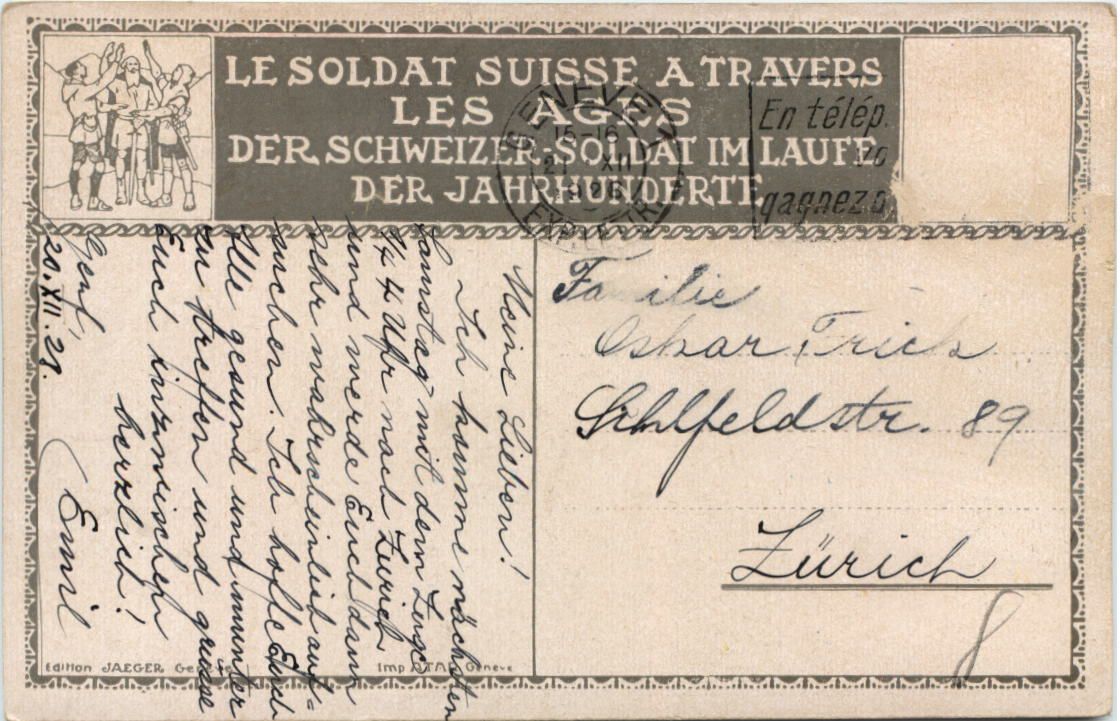 LE SOLDAT SUISSE A TRAVERS
LES AGES
DER SCHWEIZER-SOLDAT IM LAUFE
DER JAHRHUNDERTE
GENÈVE 1
15-16
21 XII
EXP. LETTR.
En télép.
gagnez
Familie
Oskar Frick
Sihlfeldstr. 89
Zürich
8
Meine Lieben!
Ich komme nächsten
Samstag mit dem Zuge
Uhr nach Zürich
und werde Euch dann
sehr wahrscheinlich auf-
suchen. Ich hoffe Euch
Alle gesund und munter
zu treffen und grüsse
Euch inzwischen
herzlich!
Genf,
20.XII.28.
Emil
Edition JAEGER Genève
Imp ATAR Genève